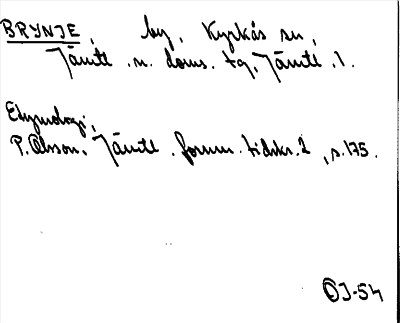 BRYNJE, by, Kyrkås sn,
Jämtl. n. doms. tg, Jämtl. l.
Etymologi:
P. Olsson, Jämtl. fornm. tidskr. 2, s. 175.
OJ-54